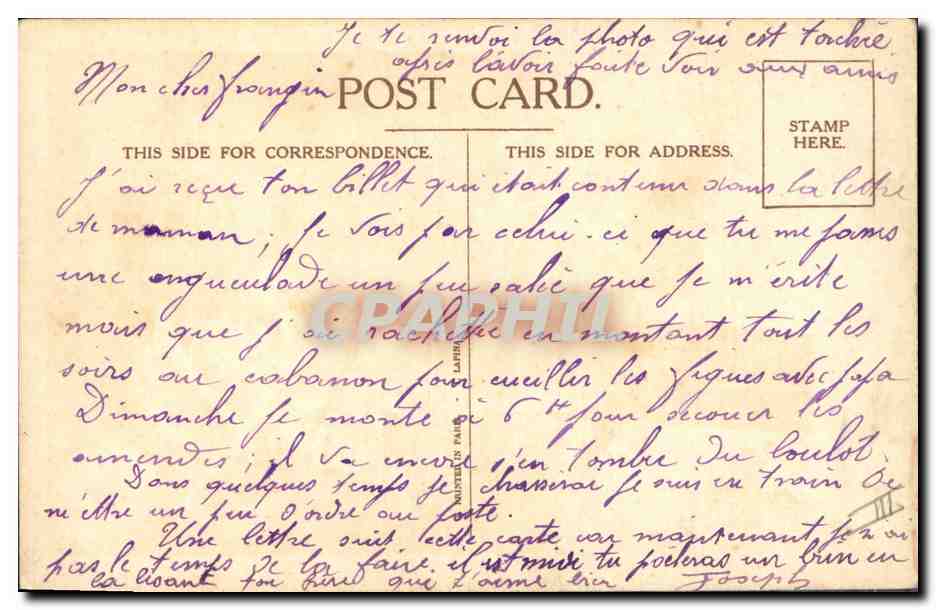 Je te renvoi la photo qui est touchée
après l'avoir faite voir aux amis
Mon cher frangin
POST CARD.
STAMP
HERE.
THIS SIDE FOR CORRESPONDENCE.
THIS SIDE FOR ADDRESS.
J'ai reçue ton billet qui était contenu dans la lettre
de maman; je vois par celui-ci que tu me passes
une engueulade un peu salée que je mérite
mais que j'ai rachetée en montant tout les
soirs au cabanon pour cueillir les figues avec papa
Dimanche je monte à 6 H pour secouer les
amendes; il va encore s'en tombre du boulot.
Dans quelques temps je chasserai je suis en train de
mettre un peu d'ordre au poste.
III
Une lettre suit cette carte car maintenant je n'ai
pas le temps de la faire il est midi tu poèteras un brin en
la lisant ton frère qui t'aime bien Joseph
PRINTED IN PARIS LAPINA
CPARHII